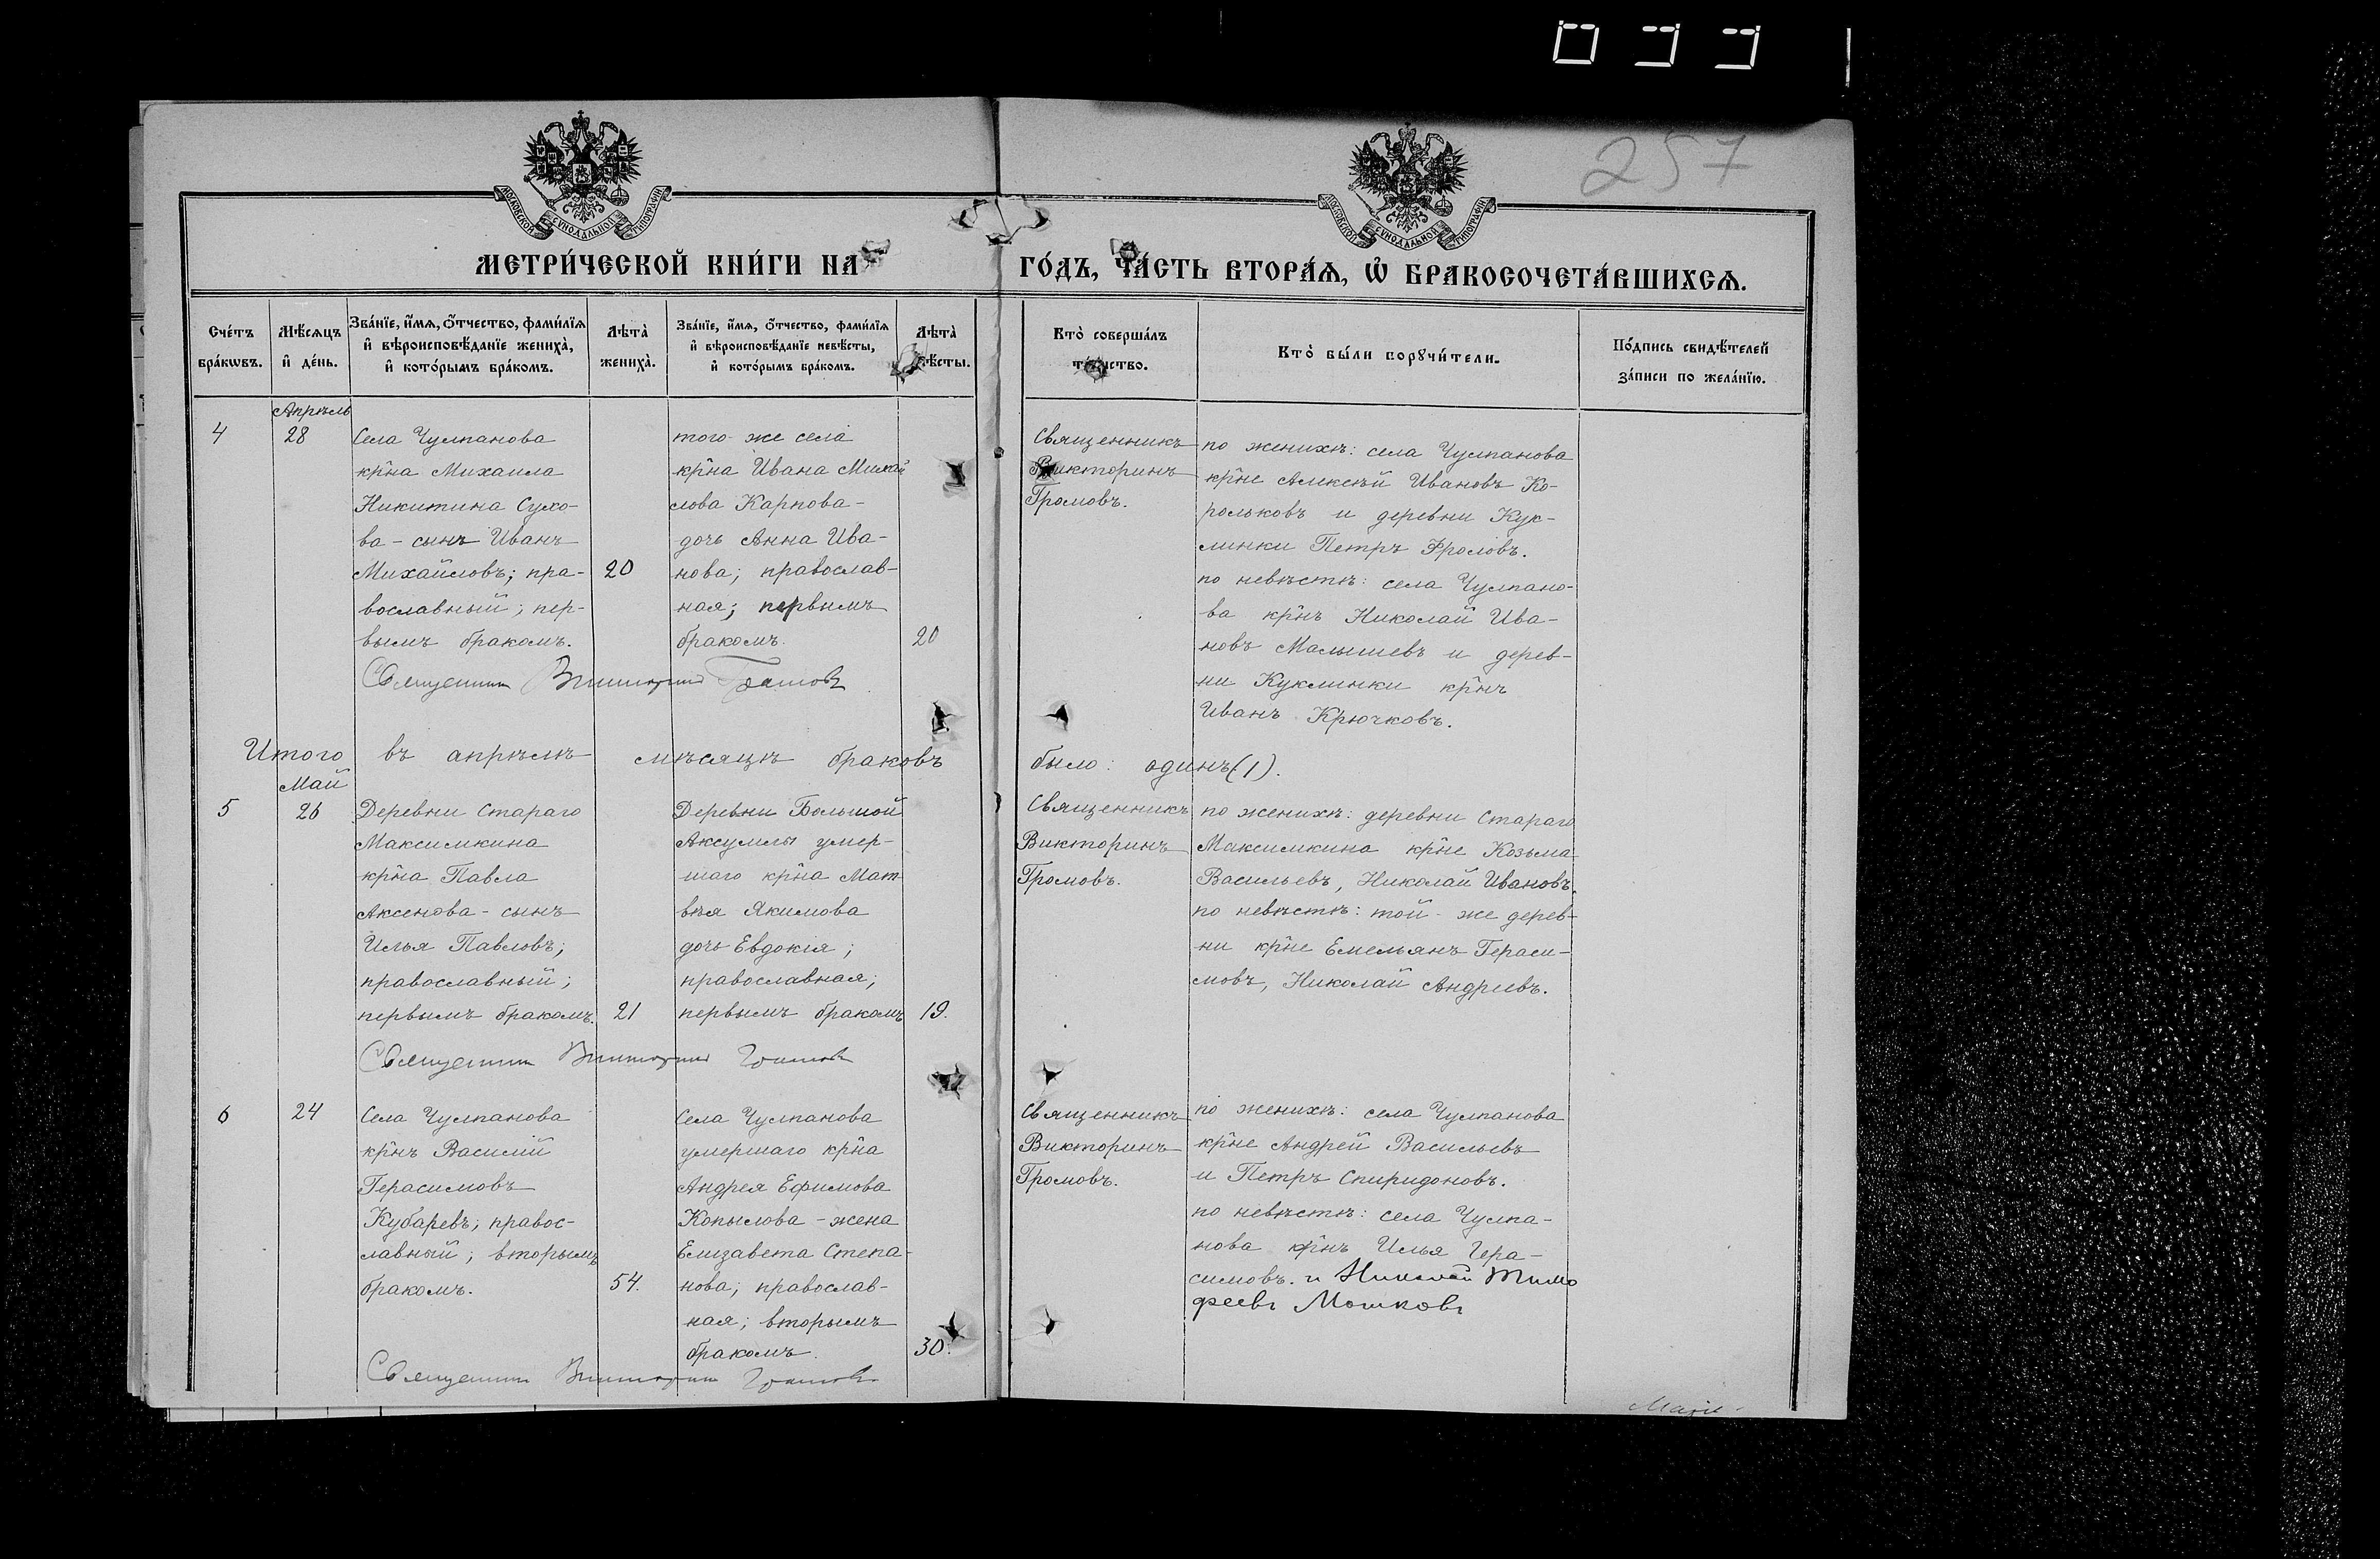 257
МОСКОВСКОЙ СѴНОДАЛЬНОЙ ТИПОГРАФІИ
МОСКОВСКОЙ СѴНОДАЛЬНОЙ ТИПОГРАФІИ
МЕТРИ́ЧЕСКОЙ КНИ́ГИ НА ГО́ДЪ, ЧА́СТЬ ВТОРА́Ѧ, Ѽ БРАКОСОЧЕТА́ВШИХСѦ.
Сче́тъ
бра́кѡвъ.
Мѣ́сяцъ
и҆ де́нь.
Зва́нїе, и҆́мѧ, ѻ҆́тчество, фами́лїѧ
и҆ вѣроисповѣ́данїе жениха̀,
и҆ кото́рымъ бра́комъ.
Лѣта̀
жениха̀.
Зва́нїе, и҆́мѧ, ѻ҆́тчество, фами́лїѧ
и҆ вѣроисповѣ́данїе невѣ́сты,
и҆ кото́рымъ бра́комъ.
Лѣта̀
Кто̀ соверша́лъ
Кто̀ бы́ли порꙋчи́тели.
По́дпись свидѣ́телей
за́писи по жела́нїю.
Апрѣль
4
28
Села Чулпанова
кр̑на Михаила
Никитина Сухо-
ва - сынъ Иванъ
Михайловъ; пра-
вославный; пер-
вымъ бракомъ.
20
того-же села
кр̑на Ивана Михай
лова Карпова -
дочь Анна Ива-
нова; православ-
ная; первымъ
бракомъ.
20
Священникъ
Викторинъ
Громовъ.
по женихѣ: села Чулпанова
кр̑не Алексѣй Ивановъ Ко-
рольковъ и деревни Кук-
линки Петръ Фроловъ.
по невѣстѣ: села Чулпано-
ва кр̑нъ Николай Ива-
новъ Малышевъ и дерев-
ни Куклинки кр̑нъ
Иванъ Крючковъ.
Священник Викторин Громовъ
Итого въ апрѣлѣ мѣсяцѣ браковъ было: одинъ (1).
Май
5
26
Деревни Стараго
Максимкина
кр̑на Павла
Аксенова - сынъ
Илья Павловъ;
православный;
первымъ бракомъ.
21
Деревни Большой
Аксумлы умер-
шаго кр̑на Мат-
вѣя Якимова
дочь Евдокія;
православная;
первымъ бракомъ
19.
Священникъ
Викторинъ
Громовъ.
по женихѣ: деревни Стараго
Максимкина кр̑не Козьма
Васильевъ, Николай Ивановъ.
по невѣстѣ: той-же дерев-
ни кр̑не Емельянъ Гераси-
мовъ, Николай Андреевъ.
Священник Викторин Громовъ
6
24
Села Чулпанова
кр̑нъ Василій
Герасимовъ
Кубаревъ; правос-
лавный; вторымъ
бракомъ.
54.
Села Чулпанова
умершаго кр̑на
Андрея Ефимова
Копылова - жена
Елизавета Степа-
нова; православ-
ная; вторымъ
бракомъ.
30.
Священникъ
Викторинъ
Громовъ.
по женихѣ: села Чулпанова
кр̑не Андрей Васильевъ
и Петръ Спиридоновъ.
по невѣстѣ: села Чулпа-
нова кр̑нъ Илья Гера-
симовъ. и Николай Тимо
феевъ Мошковъ
Священник Викторин Громовъ